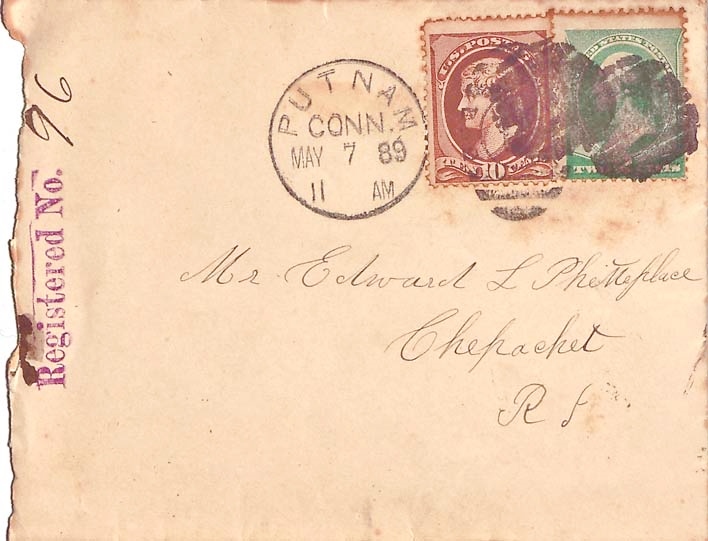 Registered No. 96
PUTNAM
CONN.
MAY 7 89
11 AM
U.S. POSTAGE
TEN 10 CENTS
UNITED STATES POSTAGE
TWO CENTS
Mr Edward L Phetteplace
Chepachet
R I